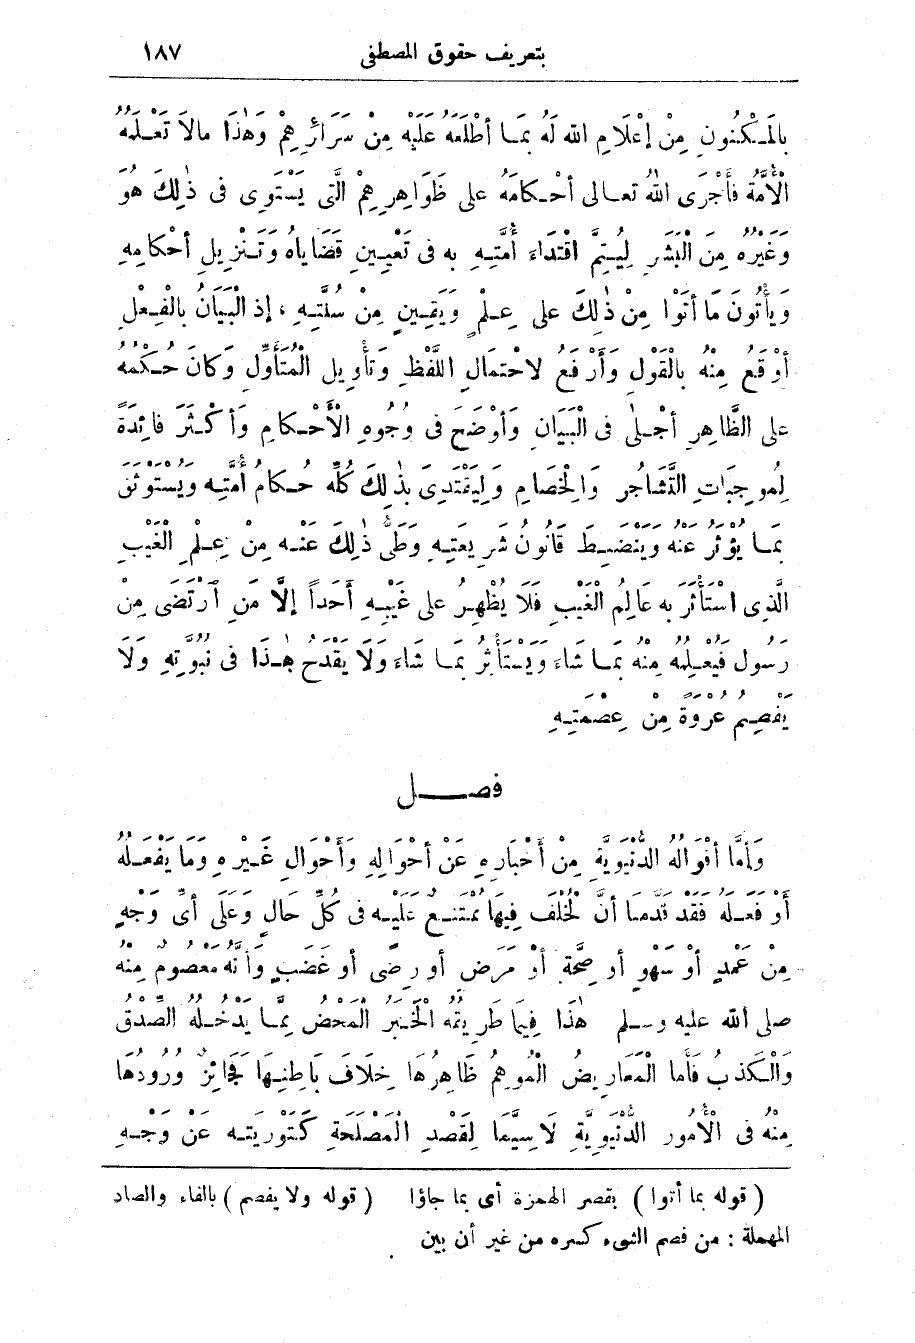 بتعريف حقوق المصطفى ١٨٧
بِالْمَكْنُونِ مِنْ إِعْلَامِ اللهِ لَهُ بِمَا أَطْلَعَهُ عَلَيْهِ مِنْ سَرَائِرِهِمْ وَهٰذَا مالاَ تَعْلَمُهُ
الْأُمَّةُ فَأَجْرَى اللهُ تعالى أَحْكَامَهُ على ظَوَاهِرِهِمُ الَّتِى يَسْتَوِى فى ذٰلِكَ هُوَ
وَغَيْرُهُ مِنَ الْبَشَرِ لِيُتِمَّ اقْتِدَاءَ أُمَّتِهِ بِهِ فى تَعْيِينِ قَضَايَاهُ وَتَنْزِيلِ أَحْكَامِهِ
وَيَأْتُونَ مَا أَتَوْا مِنْ ذٰلِكَ على عِلْمٍ وَيَقِينٍ مِنْ سُنَّتِهِ ، إذ الْبَيَانُ بالْفِعْلِ
أَوْقَعُ مِنْهُ بِالْقَوْلِ وَأَرْفَعُ لاحْتِمَالِ اللَّفْظِ وَتَأْوِيلِ الْمُتَأَوِّلِ وَكَانَ حُكْمُهُ
على الظَّاهِرِ أَجْلَى فى الْبَيَانِ وَأَوْضَحَ فى وُجُوهِ الْأَحْكَامِ وَأَكْثَرَ فَائِدَةً
لِمُوجِبَاتِ التَّشَاجُرِ وَالْخِصَامِ وَلِيَقْتَدِىَ بِذٰلِكَ كُلِّهِ حُكَّامُ أُمَّتِهِ وَيُسْتَوْثَقَ
بِمَا يُؤْثَرُ عَنْهُ وَيَنْضَبِطَ قَانُونُ شَرِيعَتِهِ وَطَىُّ ذٰلِكَ عَنْهُ مِنْ عِلْمِ الْغَيْبِ
الَّذِى اسْتَأْثَرَ بِهِ عَالِمُ الْغَيْبِ فَلَا يُظْهِرُ على غَيْبِهِ أَحَداً إلَّا مَنِ ارْتَضَى مِنْ
رَسُولٍ فَيُعْلِمُهُ مِنْهُ بِمَا شَاءَ وَيَسْتَأْثِرُ بِمَا شَاءَ وَلَا يَقْدَحُ هٰذَا فى نُبُوَّتِهِ وَلَا
يَفْصِمُ عُرْوَةً مِنْ عِصْمَتِهِ
فصــل
وَأَمَّا أَقْوَالُهُ الدُّنْيَوِيَّةُ مِنْ أَخْبَارِهِ عَنْ أَحْوَالِهِ وَأَحْوَالِ غَيْرِهِ وَمَا يَفْعَلُهُ
أَوْ فَعَلَهُ فَقَدْ قَدَّمنَا أَنَّ الْخُلْفَ فِيهَا مُمْتَنِعٌ عَلَيْهِ فى كُلِّ حَالٍ وَعَلَى أىِّ وَجْهٍ
مِنْ عَمْدٍ أَوْ سَهْوٍ أو صِحَّةٍ أَوْ مَرَضٍ أو رِضًى أو غَضَبٍ وَأَنَّهُ مَعْصُومٌ مِنْهُ
صلى الله عليه وسلم هٰذَا فِيمَا طَرِيقُهُ الْخَبَرُ الْمَحْضُ مِمَّا يَدْخُلُهُ الصِّدْقُ
وَالْكَذِبُ فَأَما الْمَعَارِيضُ الْمُوهِمُ ظَاهِرُهَا خِلَافَ بَاطِنِهَا فَجَائِزٌ وُرُودُهَا
مِنْهُ فى الْأُمُورِ الدُّنْيَوِيَّةِ لَاسِيَّمَا لِقَصْدِ الْمَصْلَحَةِ كَتَوْرِيَتِهِ عَنْ وَجْهِ
( قوله بما أتوا ) بقصر الهمزة أى بما جاؤا ( قوله ولا يفصم ) بالفاء والصاد
المهملة : من فصم الشىء كسره من غير أن يبن